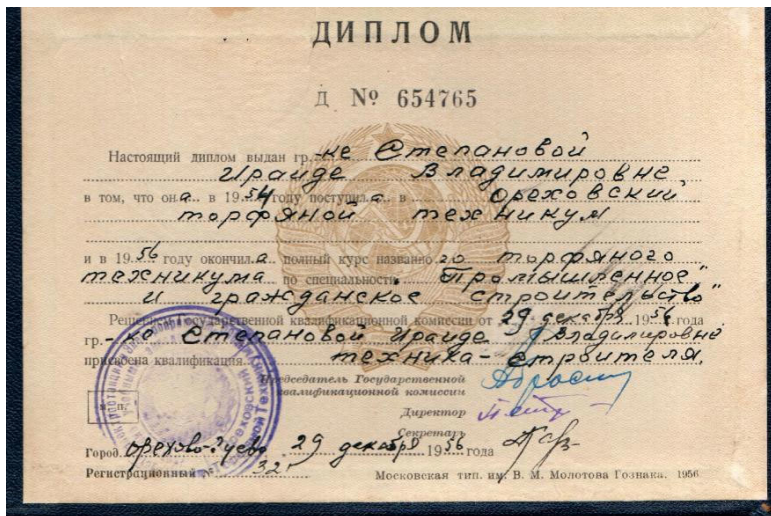 ДИПЛОМ
Д № 654765
Настоящий диплом выдан гр.-ке Степановой
Ираиде Владимировне
в том, что она в 1954 году поступила в Ореховский
торфяной техникум
и в 1956 году окончила полный курс названного торфяного
техникума по специальности "Промышленное
и гражданское строительство"
Решением Государственной квалификационной комиссии от 29 декабря 1956 года
гр.-ке Степановой Ираиде Владимировне
присвоена квалификация техника-строителя.
Председатель Государственной
квалификационной комиссии
м. п.
Директор
Секретарь
Город Орехово-Зуево 29 декабря 1956 года
Регистрационный № 32
Московская тип. им. В. М. Молотова Гознака. 1956.